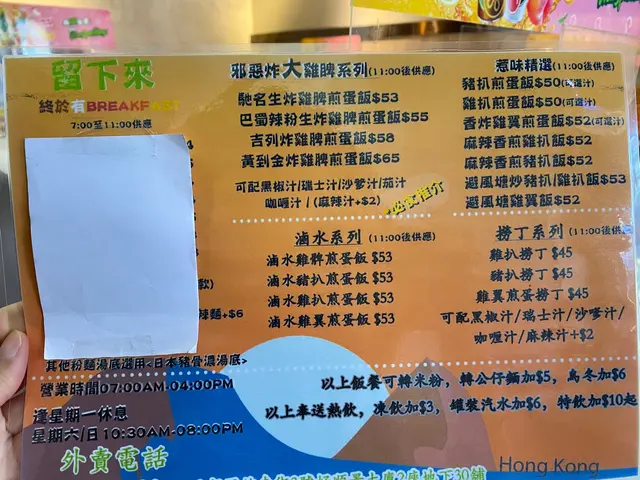 留下來
終於有BREAKFAST
7:00至11:00供應
款)
辣麵+$6
其他粉麵湯底選用<日本豬骨濃湯底>
營業時間07:00AM-04:00PM
逢星期一休息
星期六/日10:30AM-08:00PM
外賣電話
邪惡炸大雞脾系列(11:00後供應)
馳名生炸雞脾煎蛋飯$53
巴蜀辣粉生炸雞脾煎蛋飯$55
吉列炸雞脾煎蛋飯$58
黃到金炸雞脾煎蛋飯$65
可配黑椒汁/瑞士汁/沙爹汁/茄汁
咖喱汁/(麻辣汁+$2)
必食推介
滷水系列 (11:00後供應)
滷水雞髀煎蛋飯 $53
滷水豬扒煎蛋飯 $53
滷水雞扒煎蛋飯 $53
滷水雞翼煎蛋飯 $53
惹味精選(11:00後供應)
豬扒煎蛋飯$50(可選汁)
雞扒煎蛋飯$50(可選汁)
香炸雞翼煎蛋飯$52(可選汁)
麻辣香煎雞扒飯$52
麻辣香煎豬扒飯$52
避風塘炒豬扒/雞扒飯$53
避風塘雞翼飯$52
撈丁系列 (11:00後供應)
雞扒撈丁 $45
豬扒撈丁 $45
雞翼煎蛋撈丁 $45
可配黑椒汁/瑞士汁/沙爹汁/
咖喱汁/麻辣汁+$2
以上飯餐可轉米粉，轉公仔麵加$5，烏冬加$6
以上奉送熱飲，凍飲加$3，罐裝汽水加$6，特飲加$10起
Hong Kong